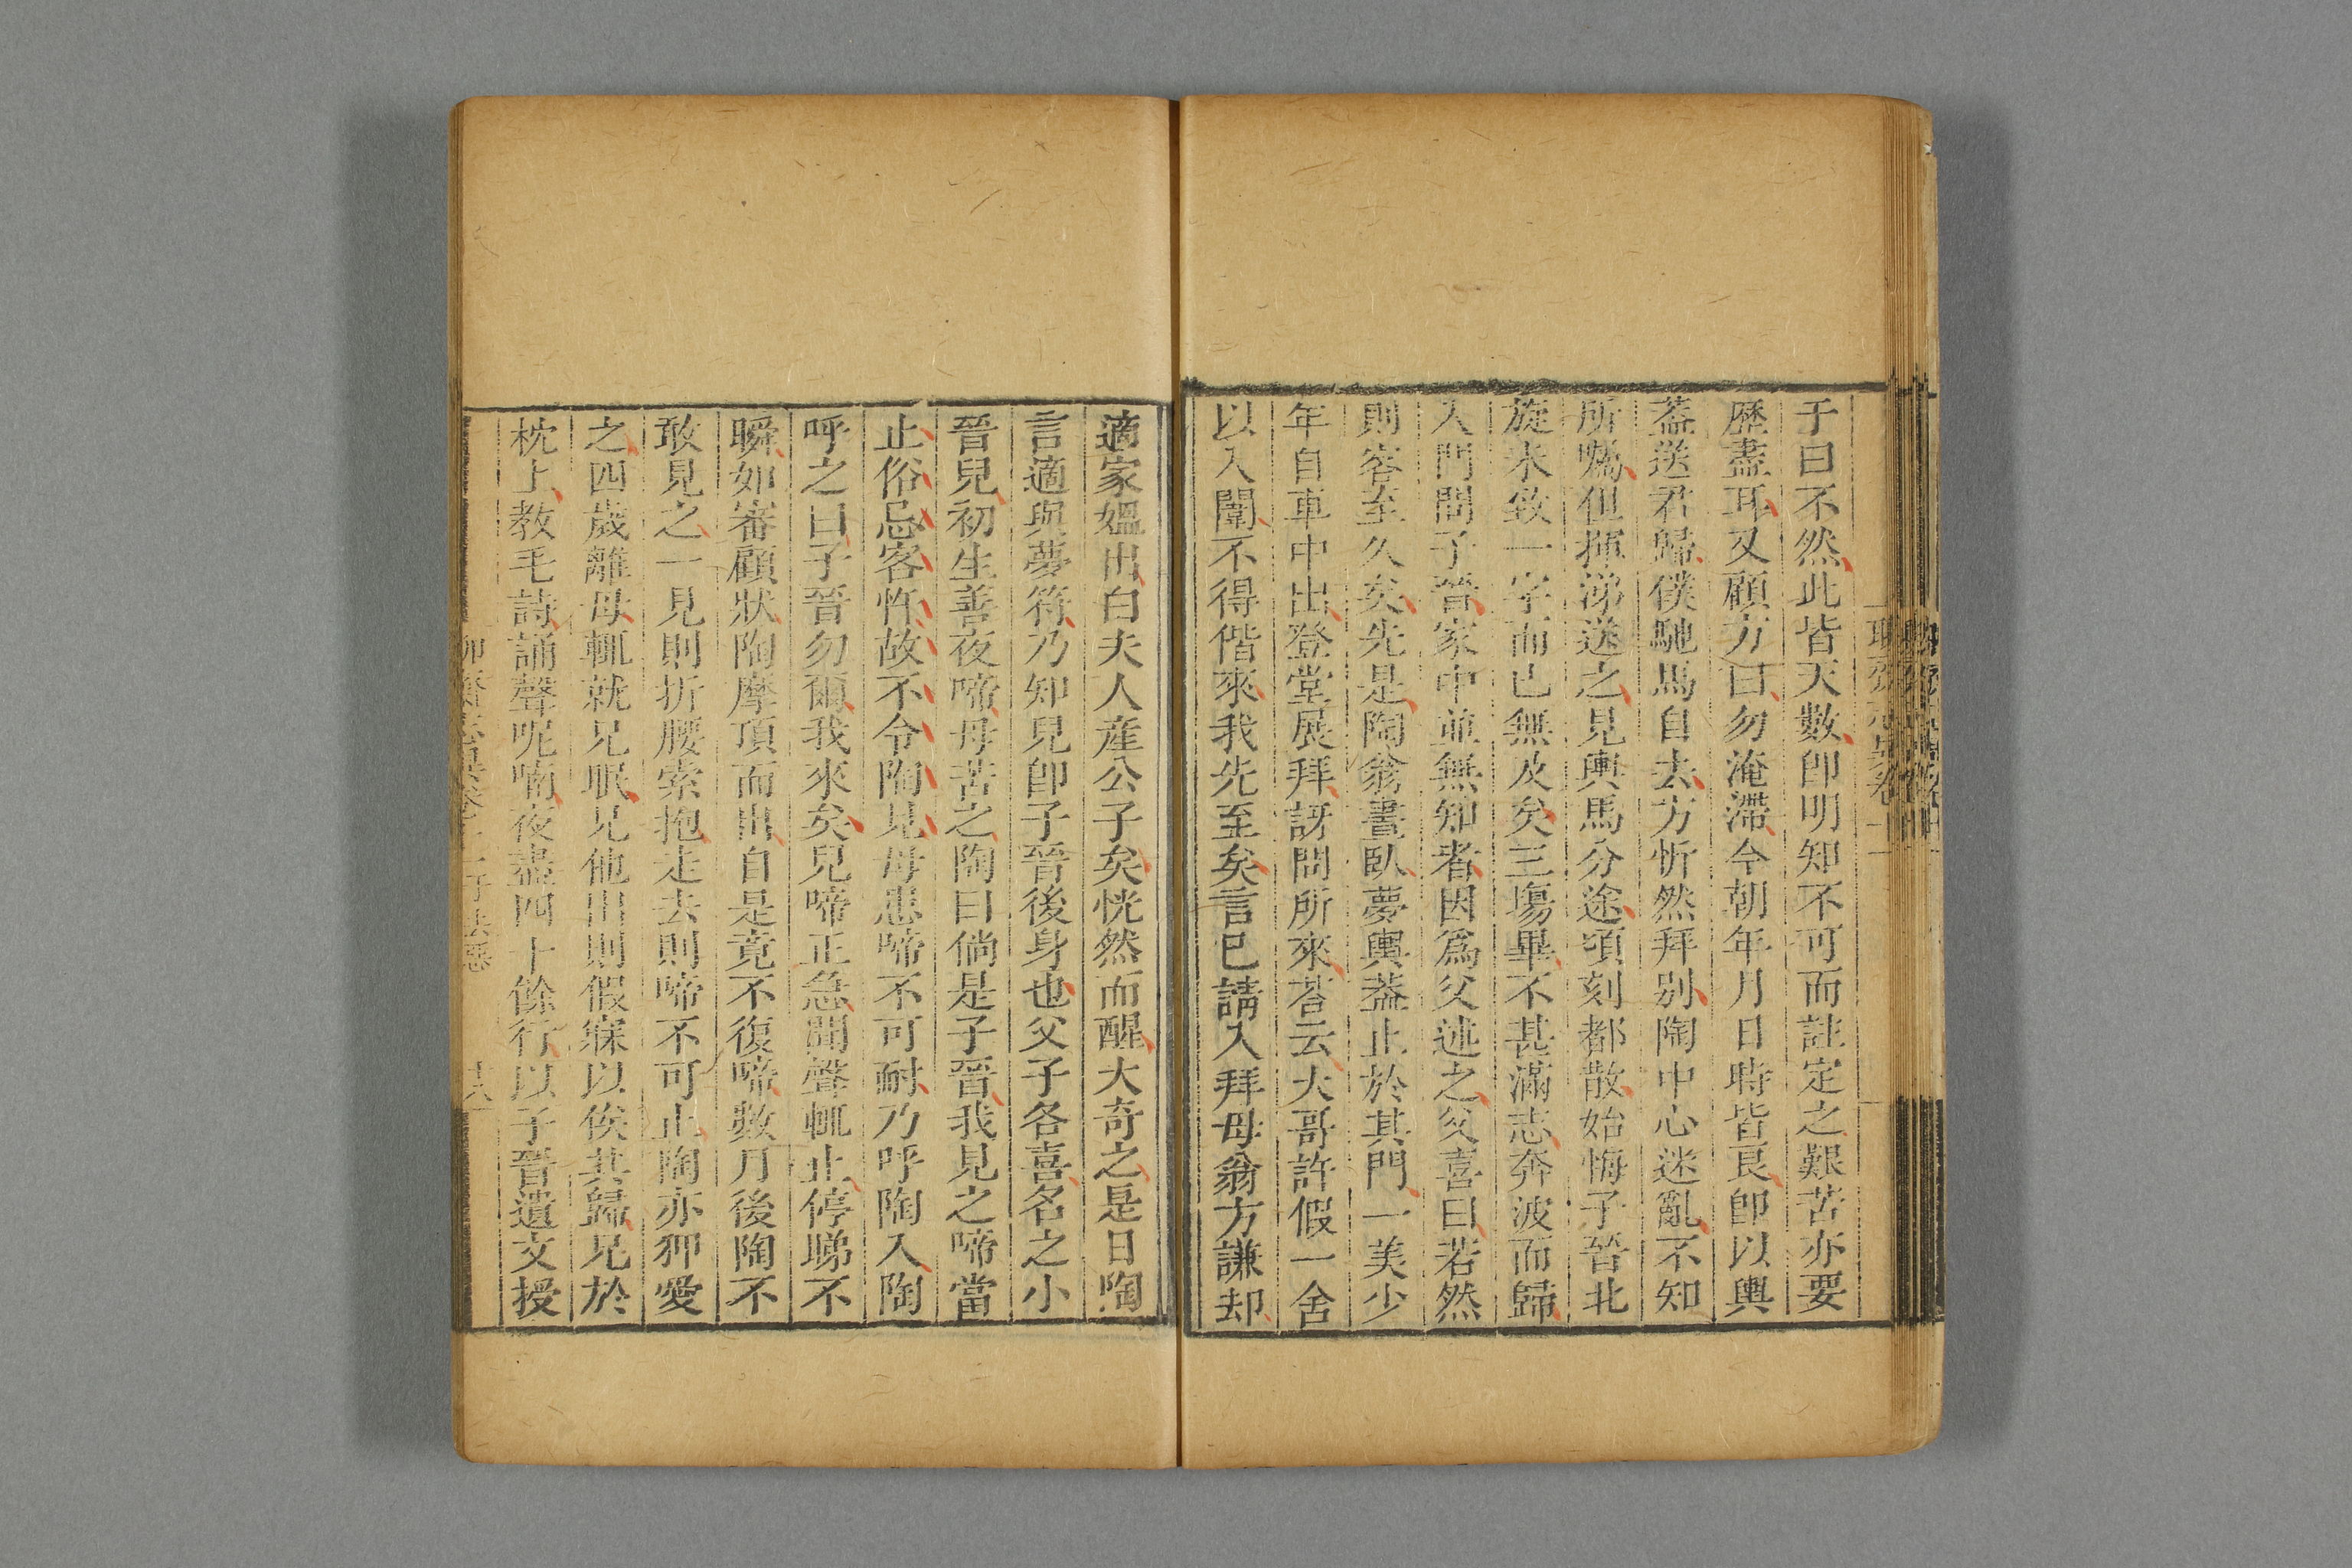 于曰不然此皆天數卽明知不可而註定之艱苦亦要
歷盡耳又顧方曰勿淹滯今朝年月日時皆良卽以輿
葢送君歸僕馳馬自去方忻然拜别陶中心迷亂不知
所囑但揮涕送之見輿馬分途頃刻都散始悔子晉北
旋未致一字而已無及矣三塲畢不甚滿志奔波而歸
入門問子晉家中並無知者因爲父述之父喜曰若然
則客至久矣先是陶翁晝臥夢輿葢止於其門一美少
年自車中出登堂展拜訝問所來荅云大哥許假一舍
以入闈不得偕來我先至矣言已請入拜母翁方謙却
適家媼出白夫人產公子矣恍然而醒大奇之是日陶
言適與夢符乃知兒卽子晉後身也父子各喜名之小
晉兒初生善夜啼母苦之陶曰倘是子晉我見之啼當
止俗忌客忤故不令陶見母患啼不可耐乃呼陶入陶
呼之曰子晉勿爾我來矣兒啼正急聞聲輒止停睇不
瞬如審顧狀陶摩頂而出自是竟不復啼數月後陶不
敢見之一見則折腰索抱走去則啼不可止陶亦狎愛
之四歲離母輒就兄眠兄他出則假寐以俟其歸兄於
枕上教毛詩誦聲呢喃夜盡四十餘行以子晉遺文授